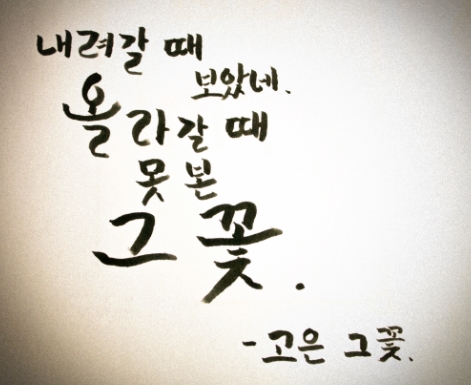 내려갈 때
보았네.
올라갈 때
못 본
그 꽃.
-고은 그꽃.